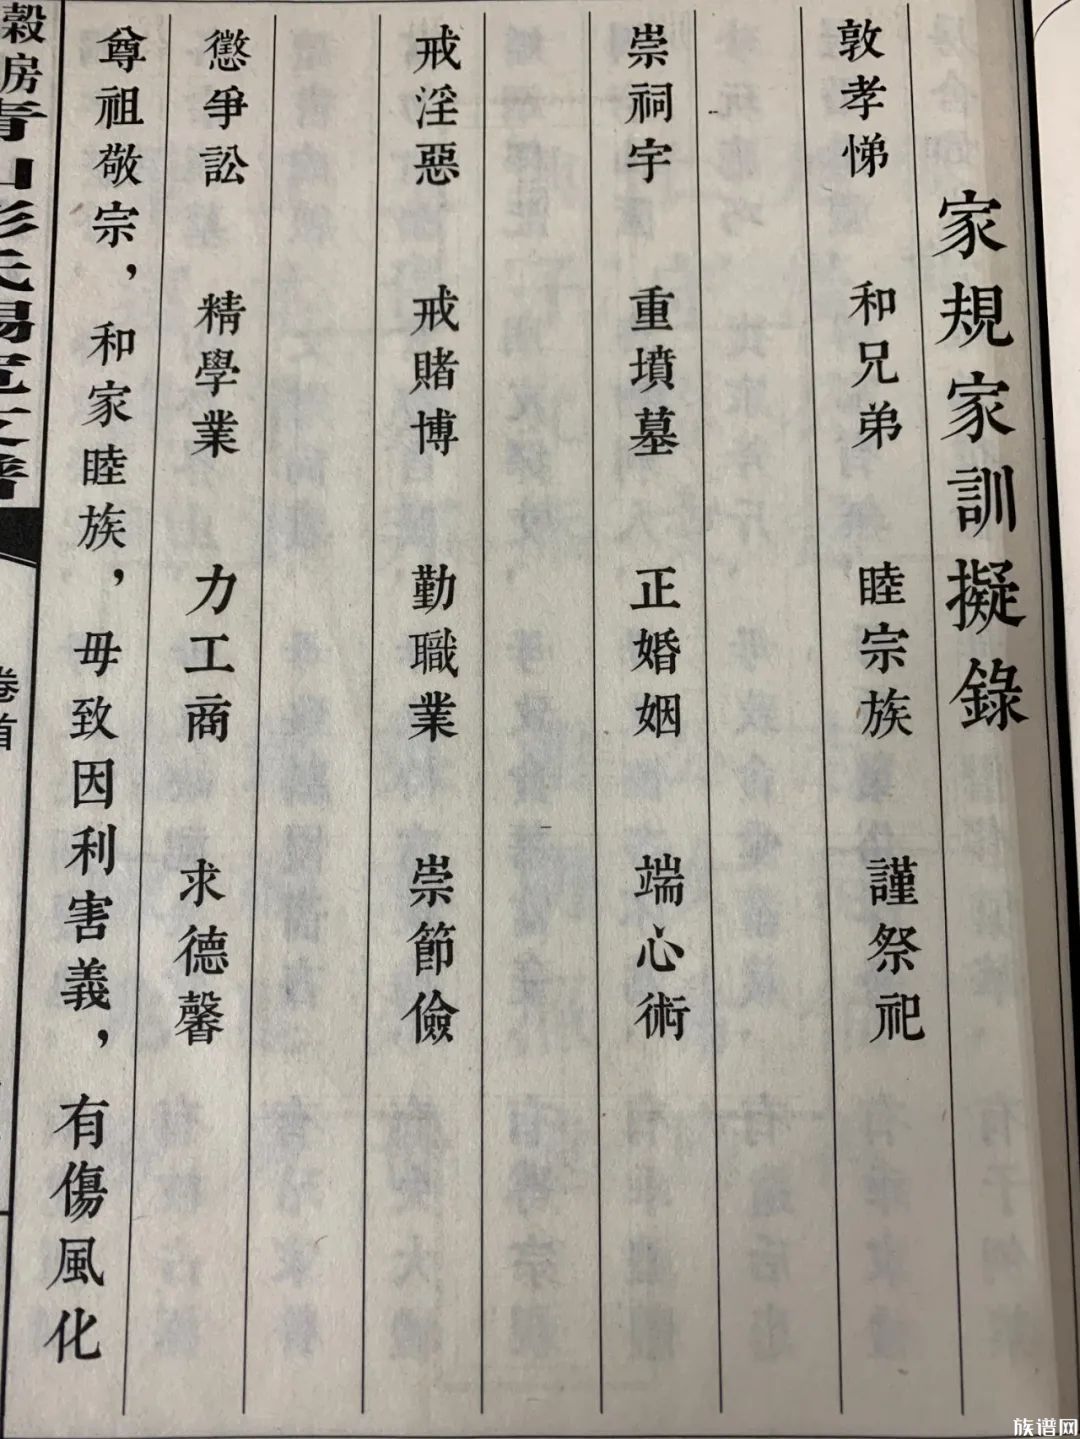 家規家訓擬錄
敦孝悌 和兄弟 睦宗族 謹祭祀
崇祠宇 重墳墓 正婚姻 端心術
戒淫惡 戒賭博 勤職業 崇節儉
懲爭訟 精學業 力工商 求德馨
尊祖敬宗，和家睦族，毋致因利害義，有傷風化
穀房青山彭氏錫
卷首
族谱网